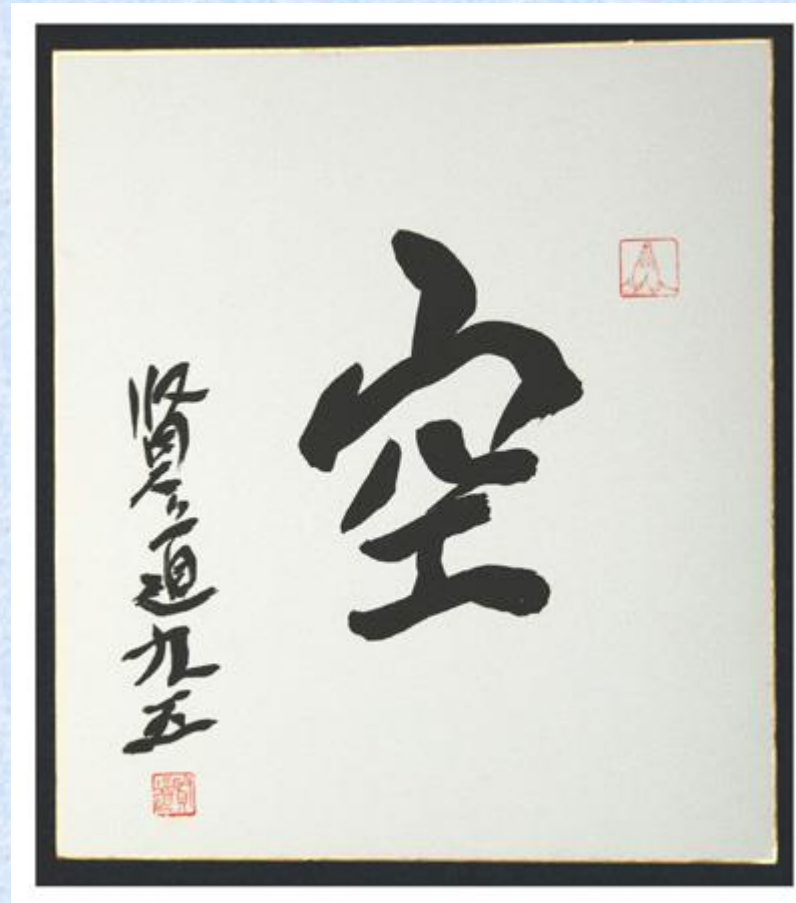 空
賢 道九五